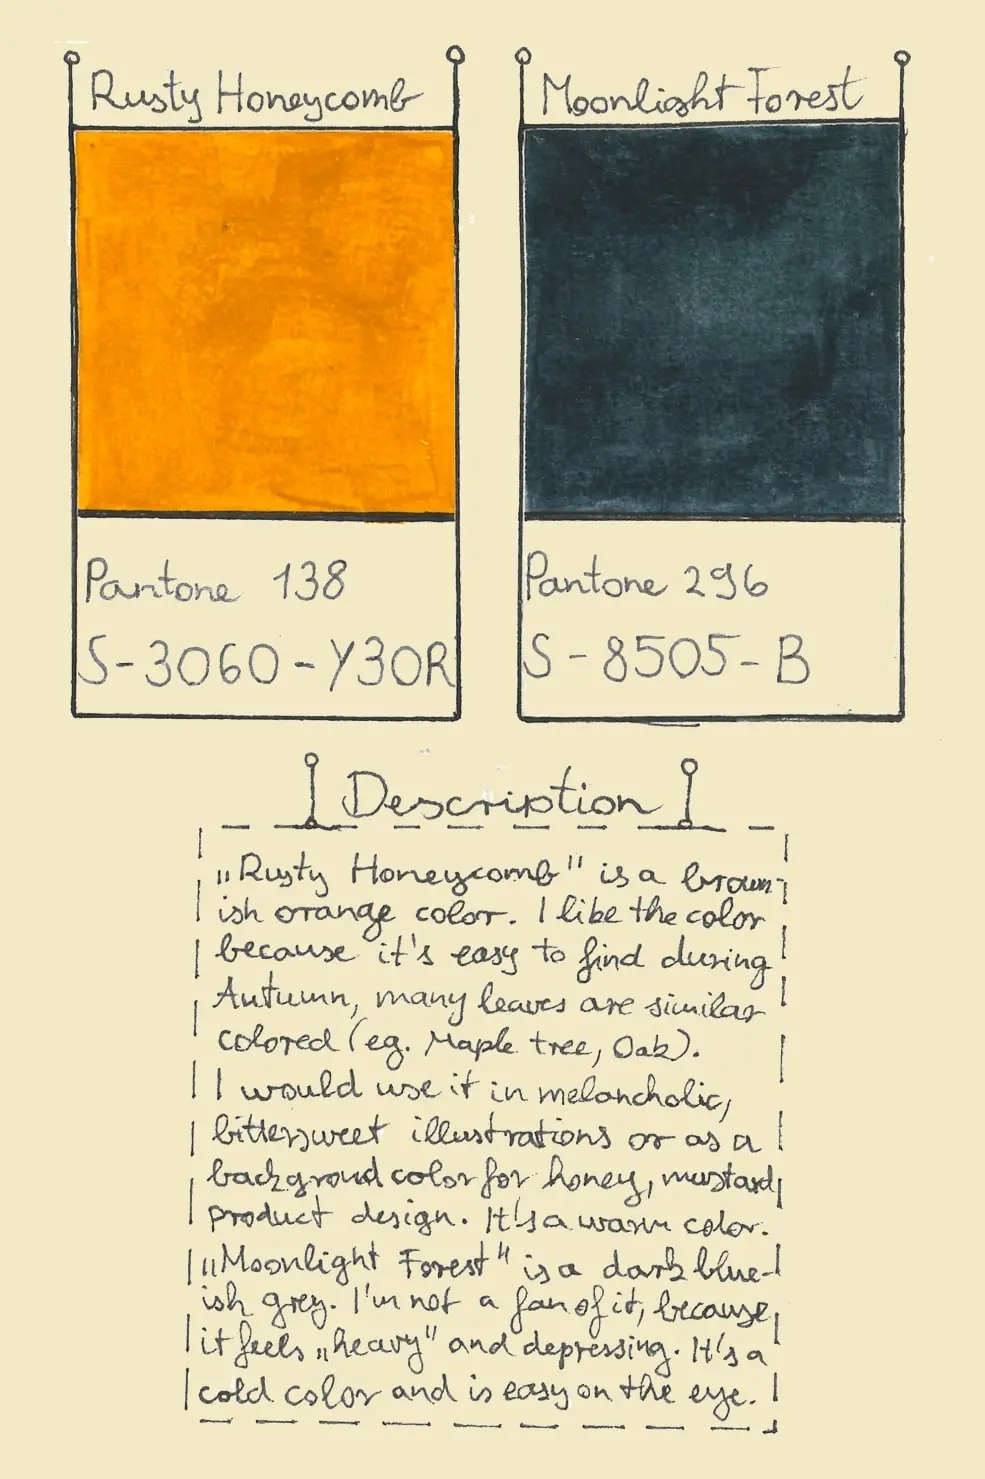 Rusty Honeycomb
Moonlight Forest
Pantone 138
S-3060-Y30R
Pantone 296
S-8505-B
Description
„Rusty Honeycomb" is a brown-
ish orange color. I like the color
because it's easy to find during
Autumn, many leaves are similar
colored (eg. Maple tree, Oak).
I would use it in melancholic,
bittersweet illustrations or as a
backgroud color for honey, mustard
product design. It's a warm color.
„Moonlight Forest" is a dark blue-
ish grey. I'm not a fan of it, because
it feels „heavy" and depressing. It's a
cold color and is easy on the eye.